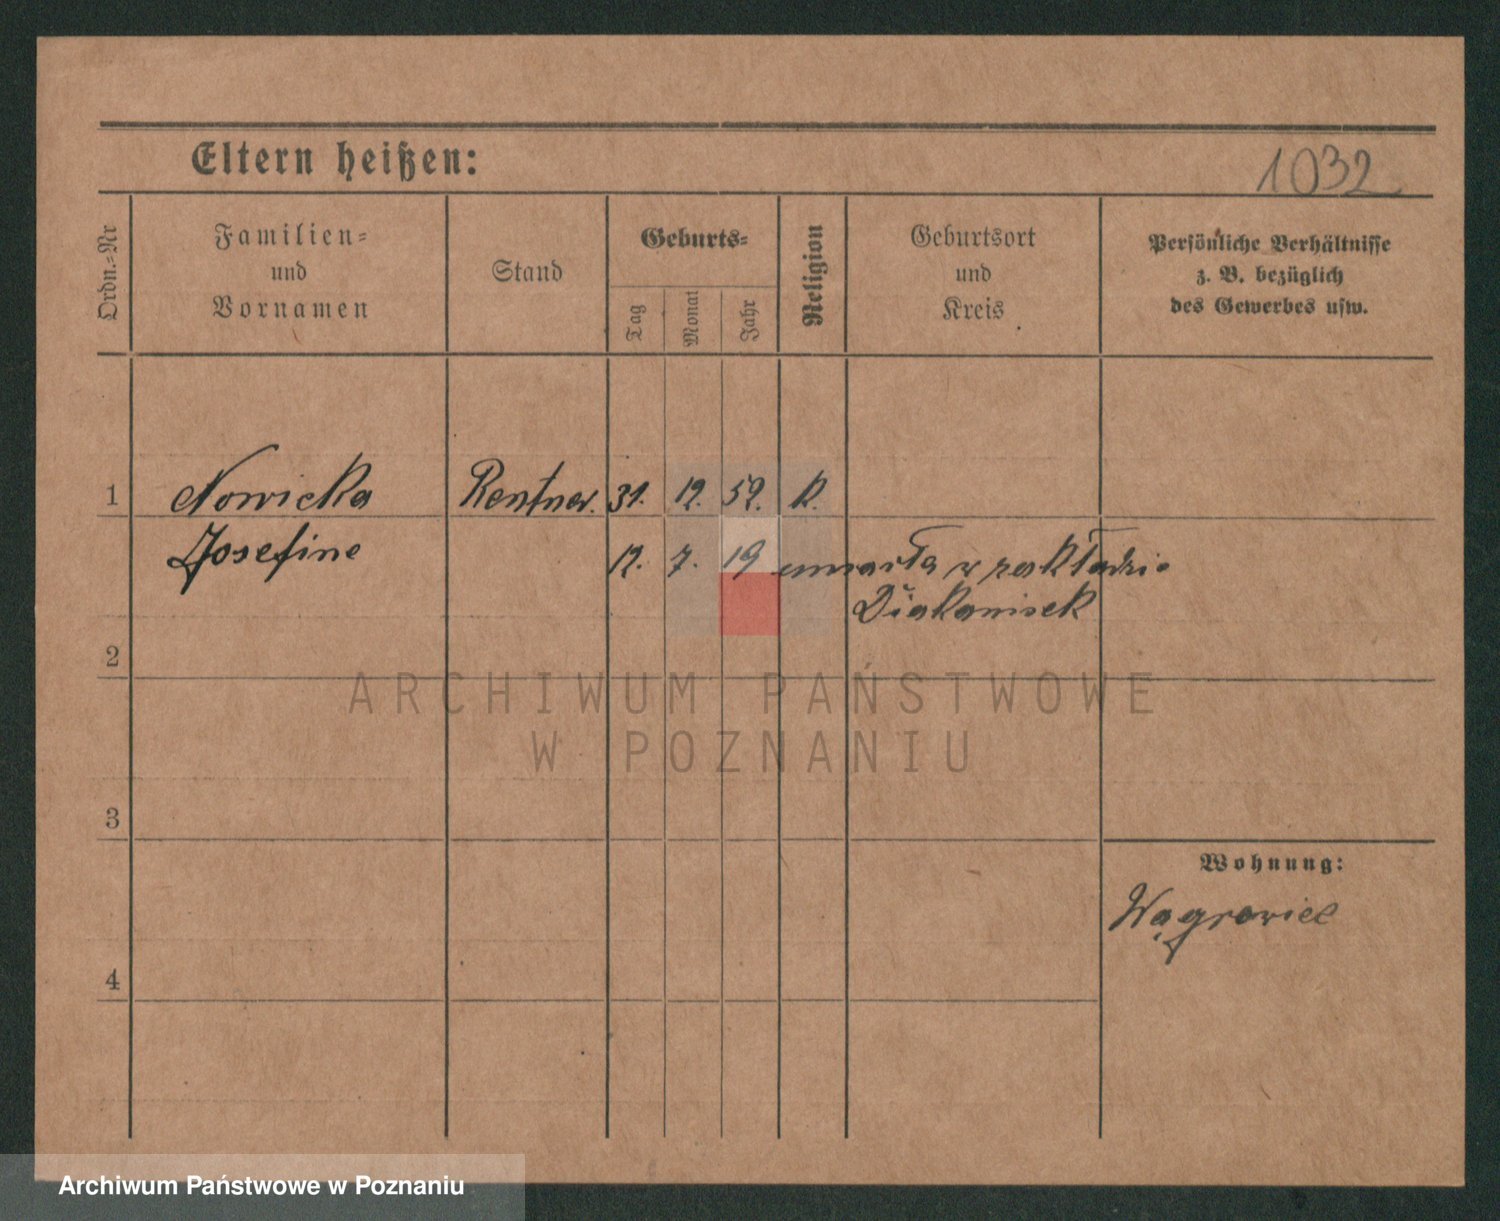 Eltern heißen:
1032
Ordn.-Nr
Familien-
und
Vornamen
Stand
Geburts-
Tag
Monat
Jahr
Religion
Geburtsort
und
Kreis
Persönliche Verhältnisse
z. B. bezüglich
des Gewerbes usw.
1 Nowicka Rentner. 31. 12. 52. K.
Josefine 12. 7. 19 umarła w zakładzie
Diakonisek
2
ARCHIWUM PAŃSTWOWE
W POZNANIU
3
Wohnung:
Wągrowiec
4
Archiwum Państwowe w Poznaniu